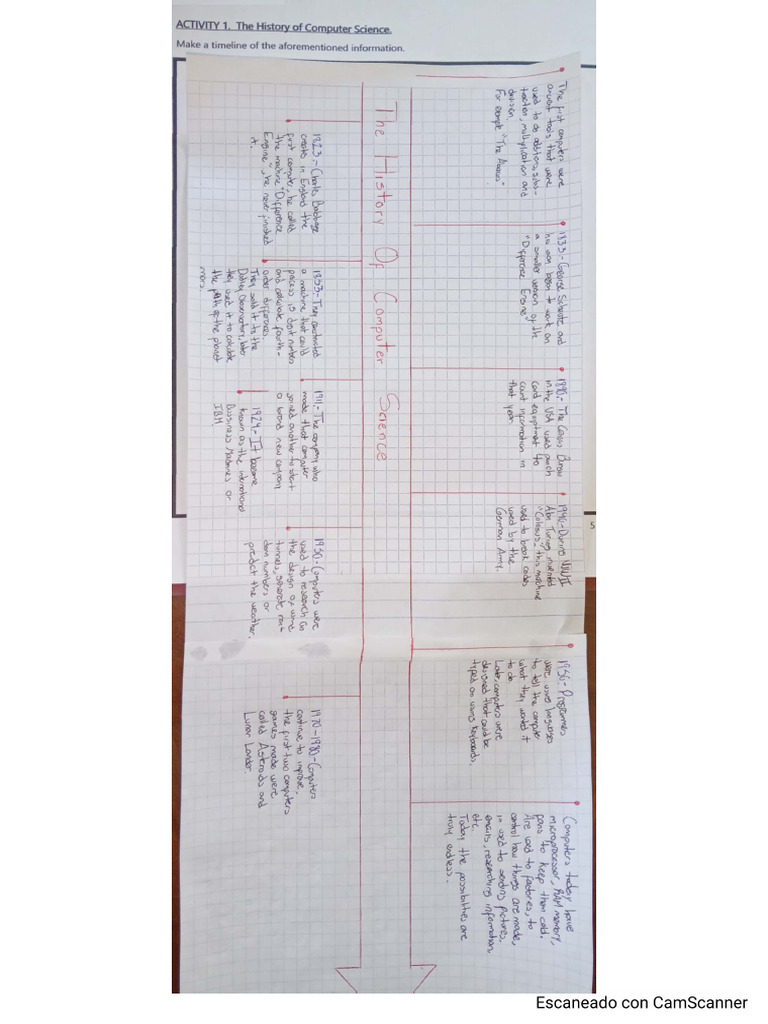 ACTIVITY 1. The History of Computer Science.
Make a timeline of the aforementioned information.
The History Of Computer Science
The first computers were
ancient tools that were
used to do additions, subs-
traction, multiplication and
division.
For example "The Abacus"
1823.- Charles Babbage
creates in England the
first computer, he called
the machine "Difference
Engine", he never finished
it.
1833.- George Scheutz and
his son began to work on
a smaller version of the
"Difference Engine"
1853.- They constructed
a machine that could
process 15 digit numbers
and calculate fourth-
order differences.
They sold it to the
Dudley Observatory, later
they used it to calculate
the path of the planet
mars.
1890.- The Census Bureau
in the USA used punch
card equiptment to
count information in
that year.
1911.- The company who
made that computer
joined another to start
a brand new company
1924.- It became
known as the international
Bussiness Machines or
IBM.
1946.- During WWII
Alan Turing invented
"Colossus", this machine
used to break codes
used by the
German Army.
1950.- Computers were
used to research in
the design of wind
tunnels, generate ran-
dom numbers or
predict the weather.
1956.- Programmes
were used languages
to tell the computer
what they wanted it
to do.
Late, computers were
designed that could be
typed on using keyboards.
1970-1980.- Computers
continue to improve,
the first two computers
games made were
called Asteroids and
Lunar Lander.
Computers today have
microprocessor, RAM memory,
fans to keep them cold.
Are used to factories, to
control how things are made,
in used to sending pictures,
emails, researching information,
etc.
Today the possibilities are
truly endless.
5
Escaneado con CamScanner